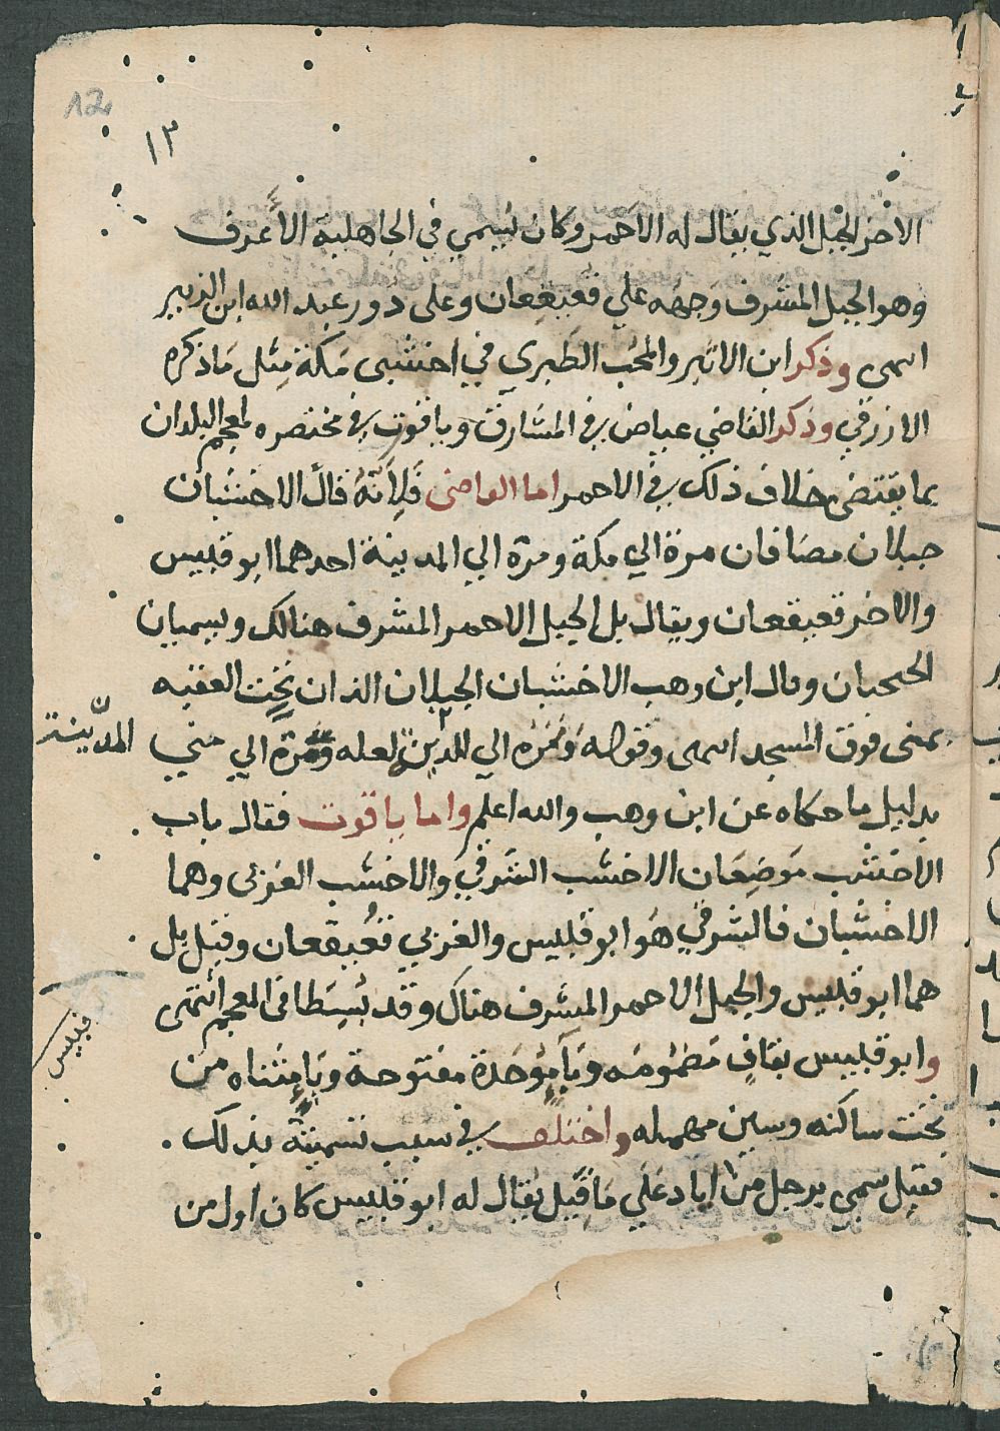 12
١٣
الاخر الجبل الذي يقال له الاحمر وكان يسمي في الجاهلية الأعرف
وهو الجبل المشرف وجهه علي قعيقعان وعلى دور عبد الله ابن الزبير
انتهى وذكر ابن الاثير والمحب الطبري في اخشبى مكة مثل ما ذكره
الازرقي وذكر القاضي عياض في المشارق وياقوت في مختصره لمعجم البلدان
بما يقتضى خلاف ذلك في الاحمر اما القاضى فلأنه قال الاخشبان
جبلان مضافان مرة الي مكة ومرة الي المدينة احدهما ابو قبيس
والاخر قعيقعان ويقال بل الجبل الاحمر المشرف هنالك ويسميان
الجبجبان وقال ابن وهب الاخشبان الجبلان اللذان تحت العقبه
بمنى فوق المسجد انتهى وقوله ومره الي المدينة لعله ومرة الي مني
المدينة
بدليل ما حكاه عن ابن وهب والله اعلم واما ياقوت فقال باب
الاخشب موضعان الاخشب الشرقي والاخشب الغربى وهما
الاخشبان فالشرقي هو ابو قبيس والغربي قعيقعان وقيل بل
هما ابو قبيس والجبل الاحمر المشرف هناك وقد بسطا في المعجم انتهى
وابو قبيس بقاف مضمومه وبا موحدة مفتوحة ويا مثناه من
قبيس
تحت ساكنه وسين مهمله واختلف في سبب تسميته بذلك
فقيل سمي برجل من اياد علي ما قيل يقال له ابو قبيس كان اول من